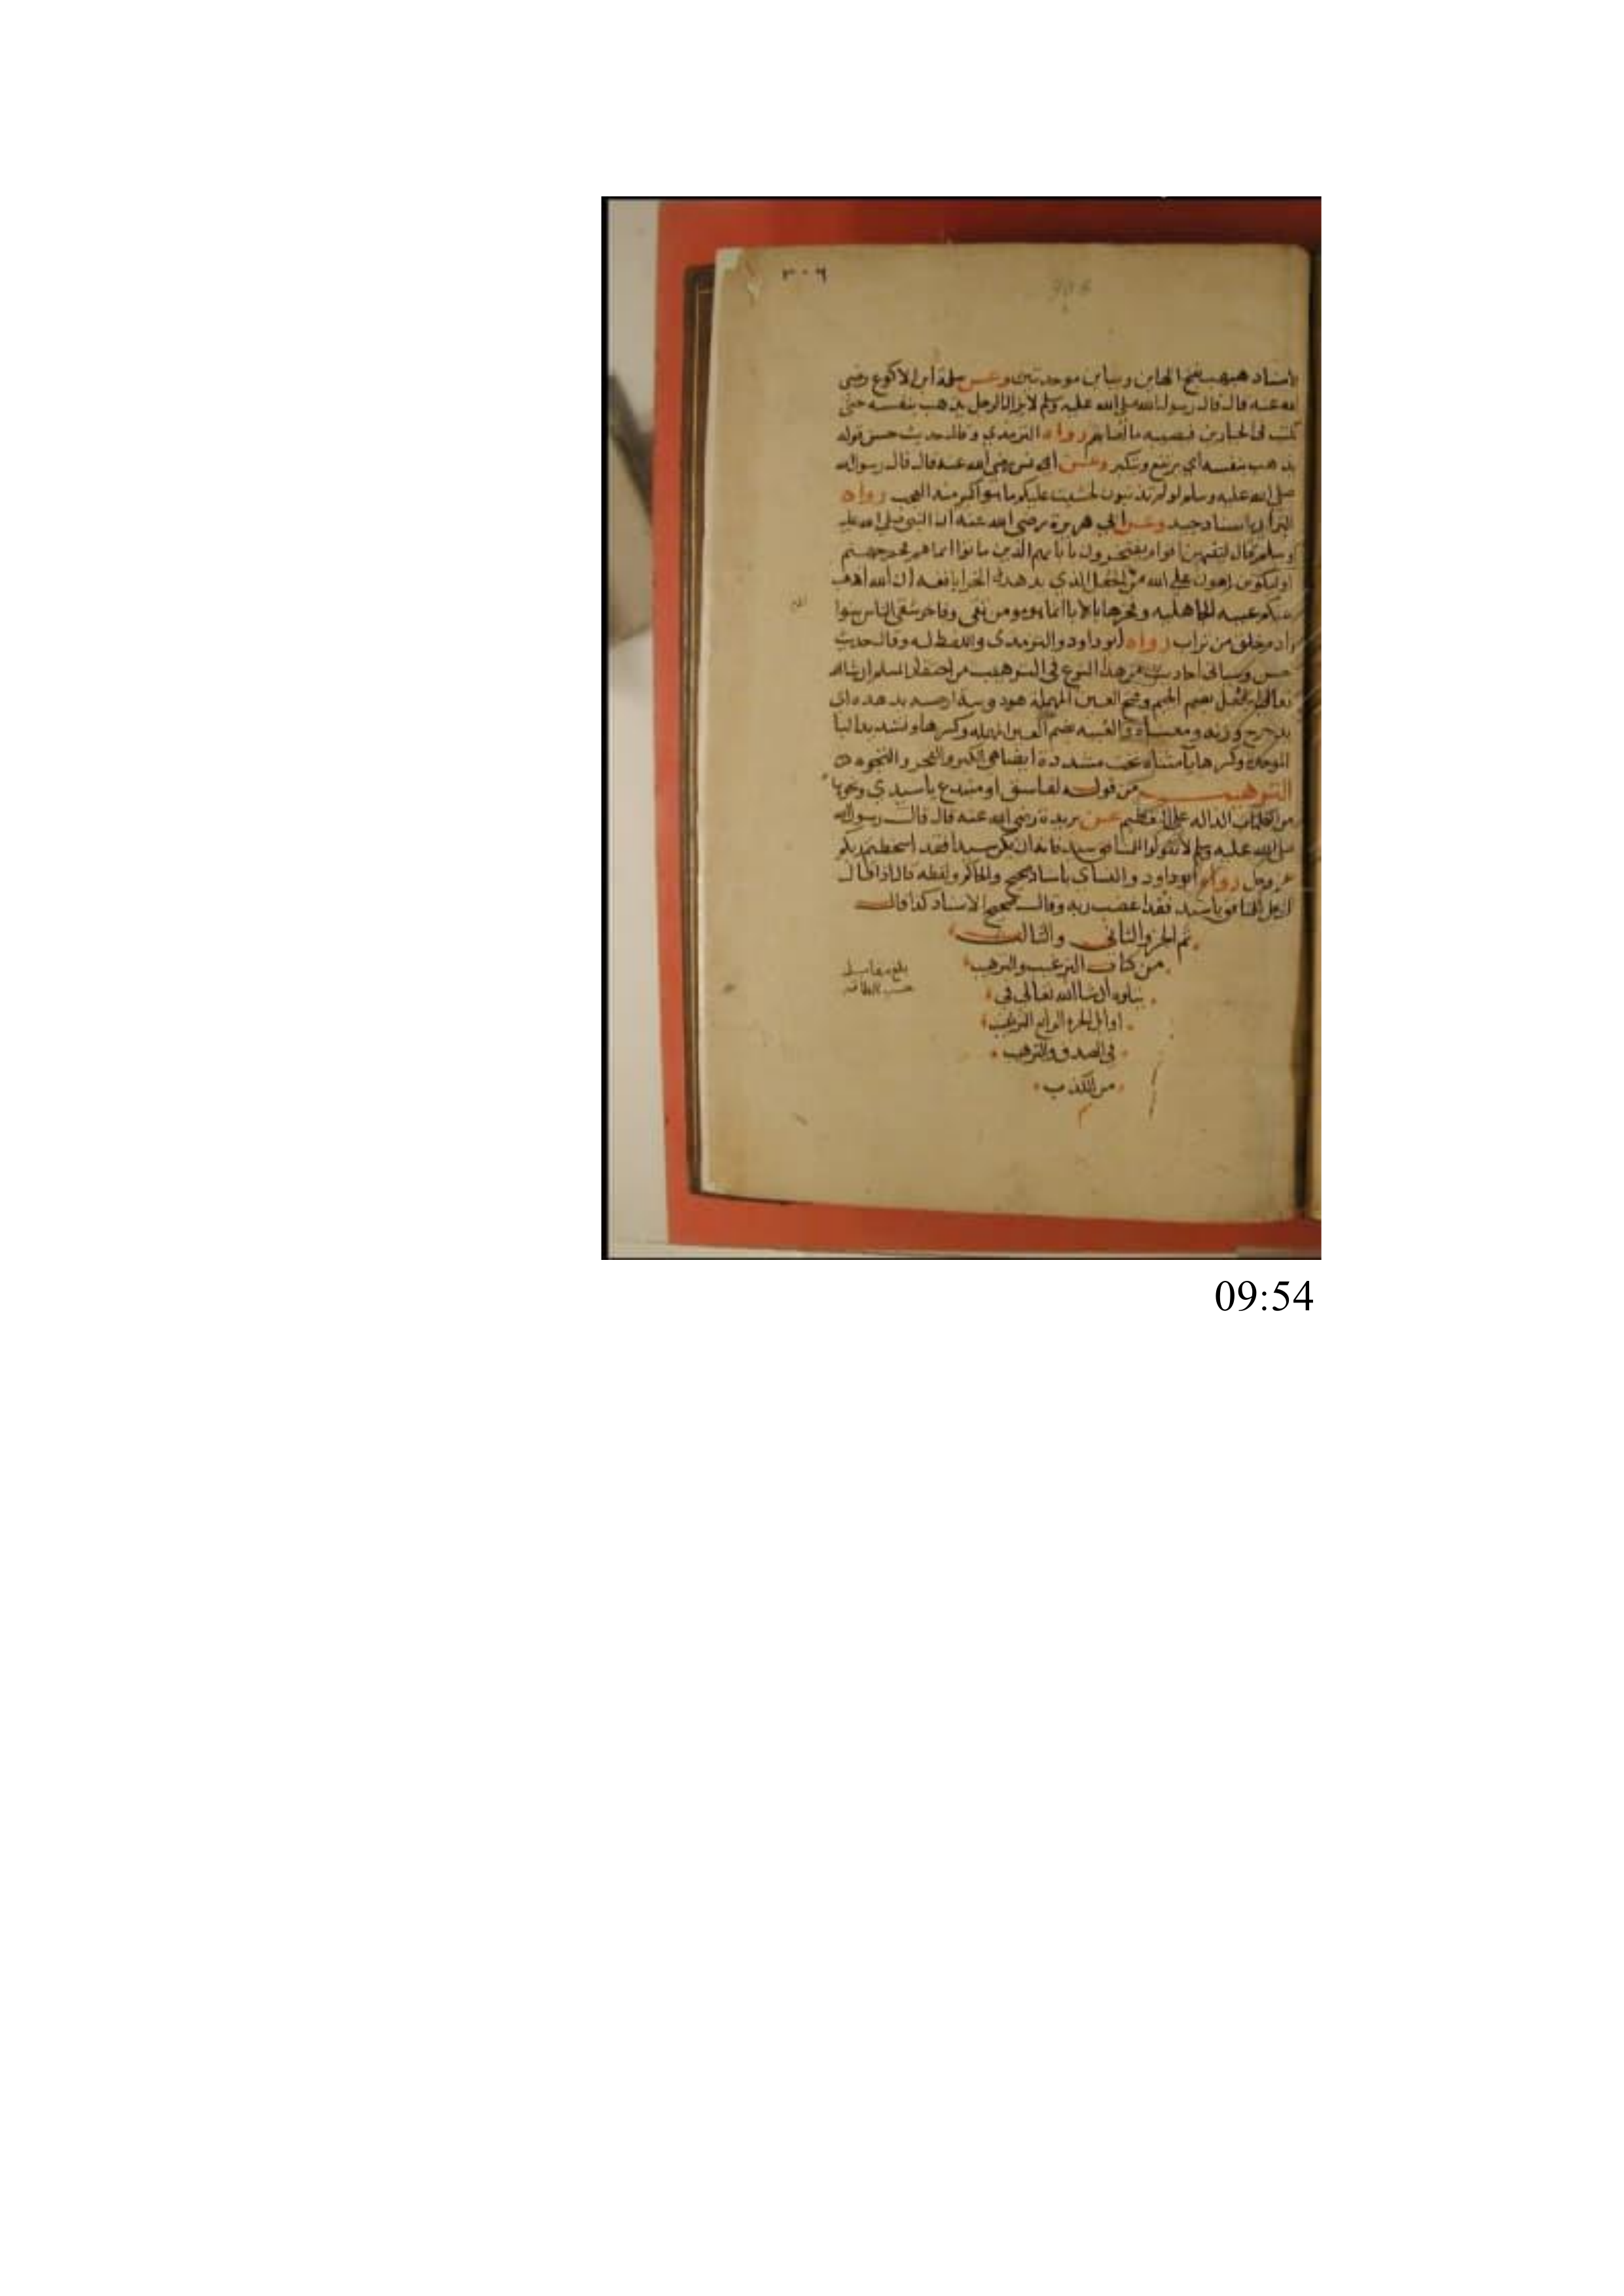 ٣٠٦
306
الاسناد هبهب بفتح الهاين وبباين موحدتين وعن سلمة ابن الاكوع رضي
الله عنه قال قال رسول الله صلى الله عليه وسلم لا يزال الرجل يذهب بنفسه حتى
يكتب في الجبارين فيصيبه ما أصابهم رواه الترمذي وقال حديث حسن قوله
يذهب بنفسه أي يرتفع ويتكبر وعن انس رضي الله عنه قال قال رسول الله
صلى الله عليه وسلم لو لم تذنبون لخشيت عليكم ما هو اكبر منه العجب رواه
البزار باسناد جيد وعن ابي هريرة رضي الله عنه ان النبي صلى الله عليه
وسلم قال لينتهين اقوام يفتخرون بابايهم الذين ماتوا انما هم فحم جهنم
او ليكونن اهون على الله من الجعل الذي يدهده الخرا بانفه ان الله اذهب
عنكم عبية الجاهلية وفخرها بالابا انما هو مومن تقي وفاجر شقي الناس بنوا
ادم وادم خلق من تراب رواه ابو داود والترمذي واللفظ له وقال حديث
حسن وسياتي احاديث من هذا النوع في الترهيب من احتقار المسلم ان شا الله
تعالى الجعل بضم الجيم وفتح العين المهملة هو دويبة ارضية يدهده اي
يدحرج وزنه ومعناه والعبية بضم العين المهملة وكسرها وتشديد البا
الموحدة وكسرها يا مثناة تحت مشددة ايضا هي الكبر والفخر والنخوة
الترهيب من قوله لفاسق او مبتدع يا سيدي ونحوها
من الكلمات الدالة على التعظيم عن بريدة رضي الله عنه قال قال رسول الله
صلى الله عليه وسلم لا تقولوا للمنافق سيد فانه ان يكن سيدا فقد اسخطتم ربكم
عز وجل رواه ابو داود والنساي باسناد صحيح والحاكم ولفظه قال اذا قال
الرجل للمنافق يا سيد فقد اغضب ربه وقال صحيح الاسناد كذا قال
تم الجزو الثاني والثالث
من كتاب الترغيب والترهيب
يتلوه ان شا الله تعالى في
اوايل الجزو الرابع الترغيب
في الصدق والترهيب
من الكذب
م
بلغ مقابله
حسب الطاقه
09:54